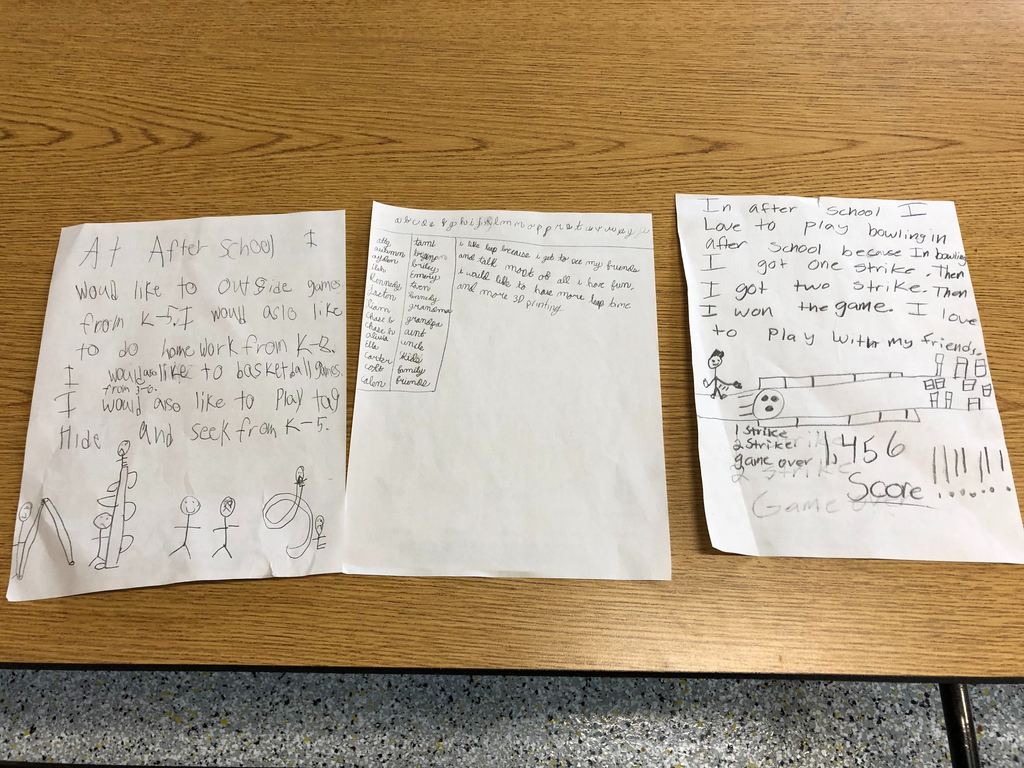 At After School I
would like to outside games
from K-5. I would aslo like
to do home work from K-2.
I would also like to basketball games
from 3-6.
I would also like to Play tag
Hide and seek from K-5.
autumn
kennedy
liam
chase b
chase w
olivia
ella
carter
colt
calen
tami
briley
Emmy
kennedy
grandma
grandpa
aunt
uncle
kids
family
friends
i like leap because i get to see my friends
and talk most of all i have fun.
i would like to have more leap time
and more 3D printing
In after school I
Love to Play bowling in
after school because In bowling
I got one strike. Then
I got two strike. Then
I won the game. I love
to Play with my friends.
1 Strike
2 Striker
game over
1,456
Score
!!!!!!!
Game